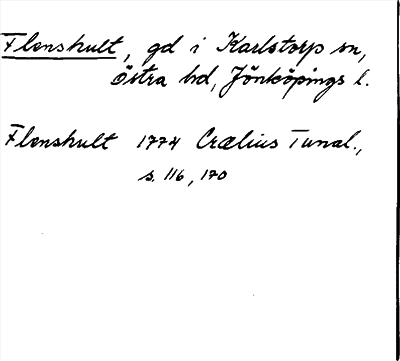 Flenshult, gd i Karlstorps sn,
Östra hd, Jönköpings l.
Flenshult 1774 Crælius Tunal.,
s. 116, 170